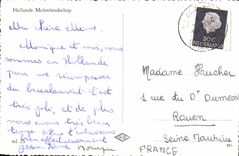 Hollands Molenlandschap
Ma chère Mémé.
Monique et moi, nous
sommes en Hollande
pour me récompenser
du baccalauréat. C'est
très joli, et de plus
nous avons très beau
temps.
affectueusement
20c
NEDERLAND
Madame Faucher
1 rue du Dr Dumesnil
Rouen
Seine Maritime
FRANCE